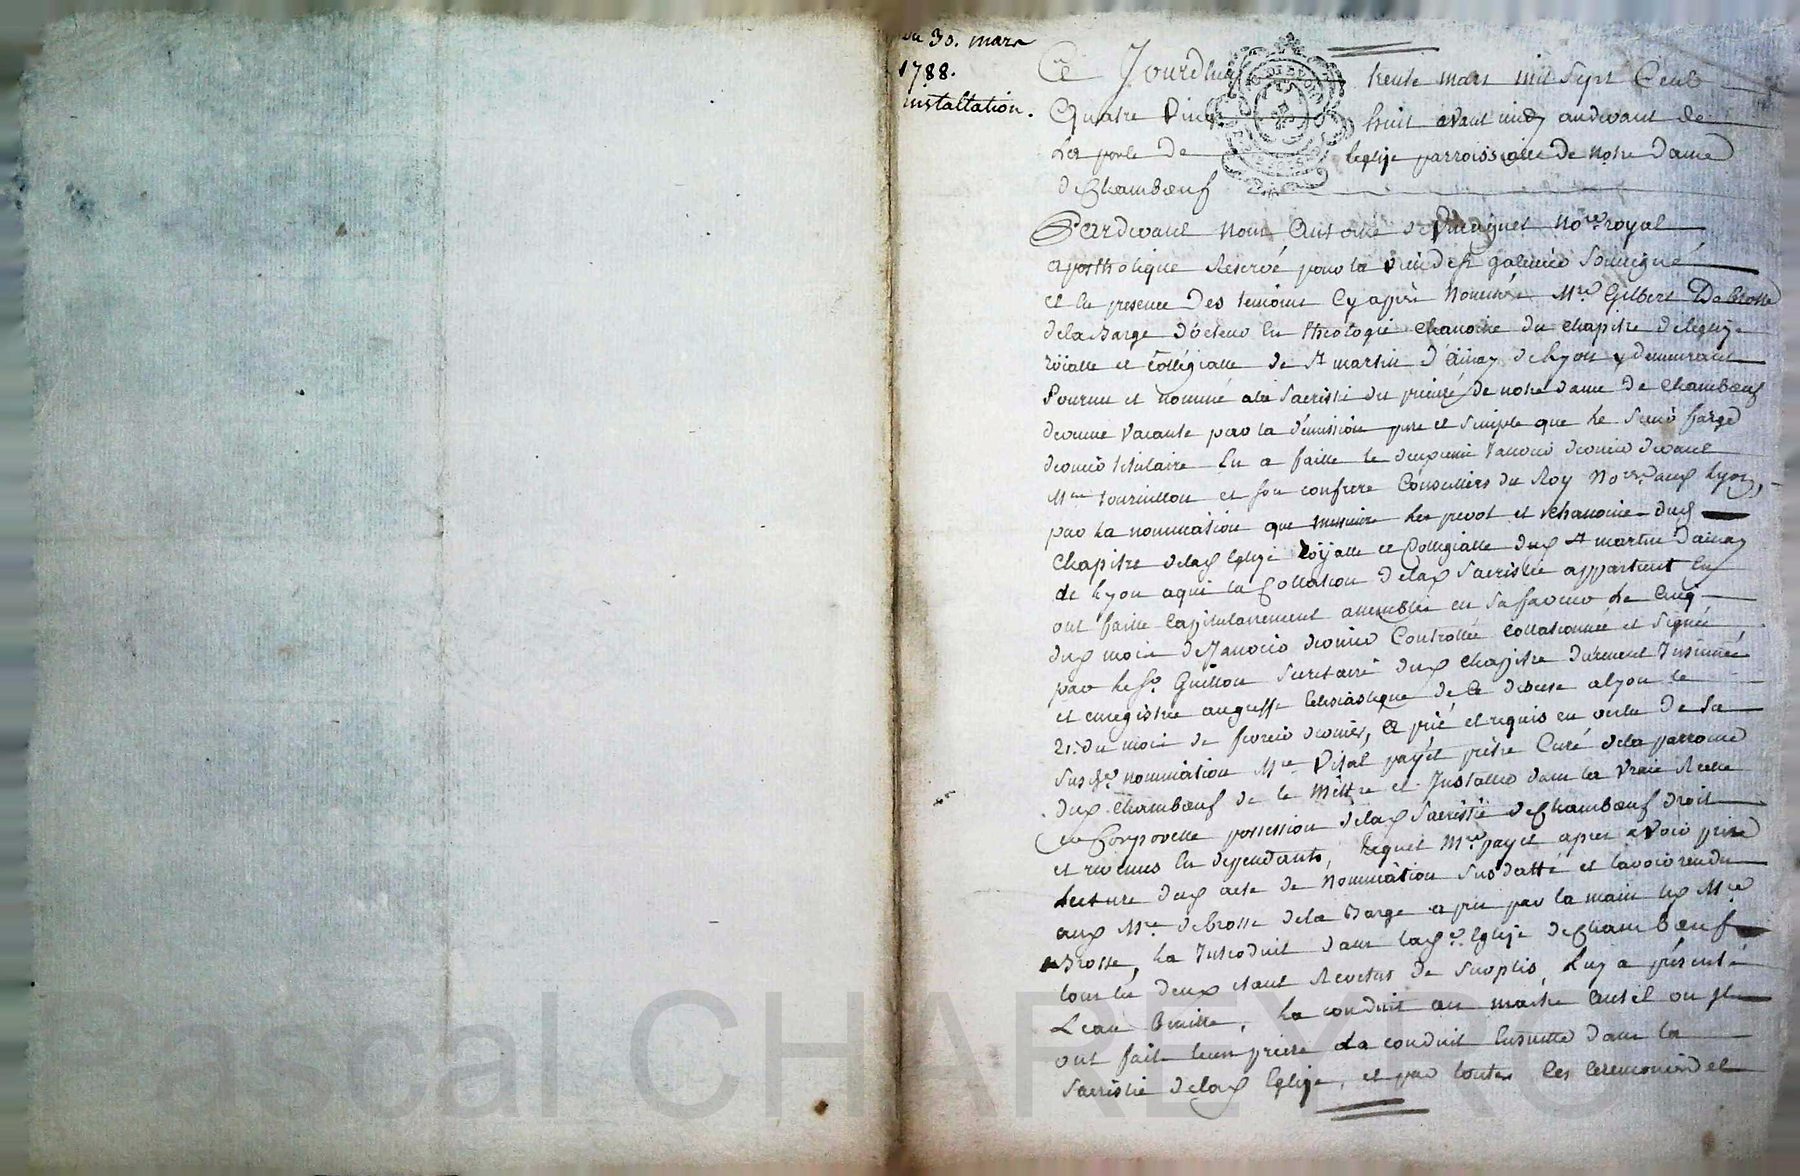 du 30. mars
1788.
installation.
Ce Jourdhuy trente mars mil sept Cent
Quatre Vingt huit avant midy audevant de
La porte de leglize parroissialle de Notre dame
de Chambœuf
Pardevant Nous Antoine notre royal
aposthotique Reservé pour la soussigné
et En presence Des temoins Cy après Nommés Mre Gilbert DeBrosse
dela Barge docteur En theologie Chanoine du chapitre deleglize
roÿalle et Collégialle de St martin d'ainay de Lyon y demeurant
Pourvu et nommé ala Sacristie du prieuré de notre dame de Chambœuf
devenue Vacante par la démission pure et Simple que le Sieur farge
dernier titulaire En a faitte le deuxieme Janvier dernier devant
Me tournillon et son confrere Conseillers du Roy Nores aux Lyon,
par la nomination que messieurs Les prevot et Chanoines dud
Chapitre delad Eglize roÿalle et Collegialle dud St martin dainay
de Lyon aqui la Collation delad Sacristie appartient En
ont faitte Capitulairement assemblés en sa faveur le Cinq
dud mois de Janvier dernier Controllée Collationnée et Signée
par le Sr Guillon Secretaire dud Chapitre duement Insinuée
et enregistrée augreffe Eclesiastique de Ce diocese alyon le
21. du mois de fevrier dernier, a prié et requis en vertu de Sa
Susde nomination Mre Vital payet prêtre Curé dela parroisse
dud Chambœuf de le Mettre et Installer dans la Vraie Reelle
et Corporelle possession delad Sacristie de Chambœuf droits
et revenus En dependants, Lequel Mre payet apres avoir prise
Lecture dud acte de Nomination Susdatté et lavoir rendu
aud Mre deBrosse dela Barge a pris par la main led Mre
deBrosse, La Introduit dans lade Eglize de Chambœuf
tous les deux etant Revetus de Surplis, Luy a présenté
Leau Benitte, La conduit au maitre autel ou Ils
ont fait leurs prieres La conduit Ensuitte dans la
Sacristie delad Eglize, et par toutes les Ceremonies et
Pascal CHAREYRON